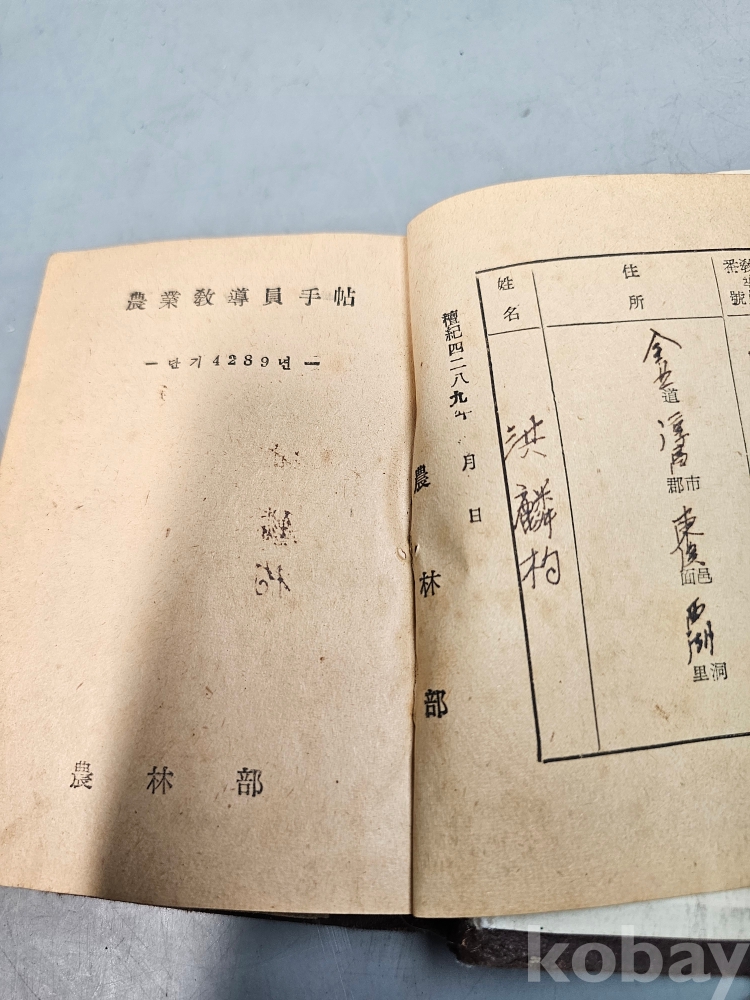 農業敎導員手帖
— 단기 4289년 —
農林部
敎導
番號
住所
全北道
淳昌市郡
東溪邑面
西湖洞里
姓名
洪麟杓
檀紀四二八九年 月 日
農林部
kobay